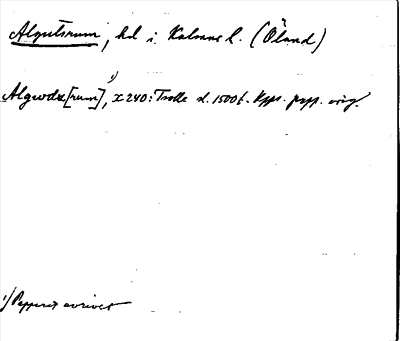 Algutsrum, hd i Kalmar l. (Öland)
Algwdz[rum],¹⁾ x 240: Trolle d. 1500 t. Kpr. papp. orig.
¹⁾ Papperet avrivet